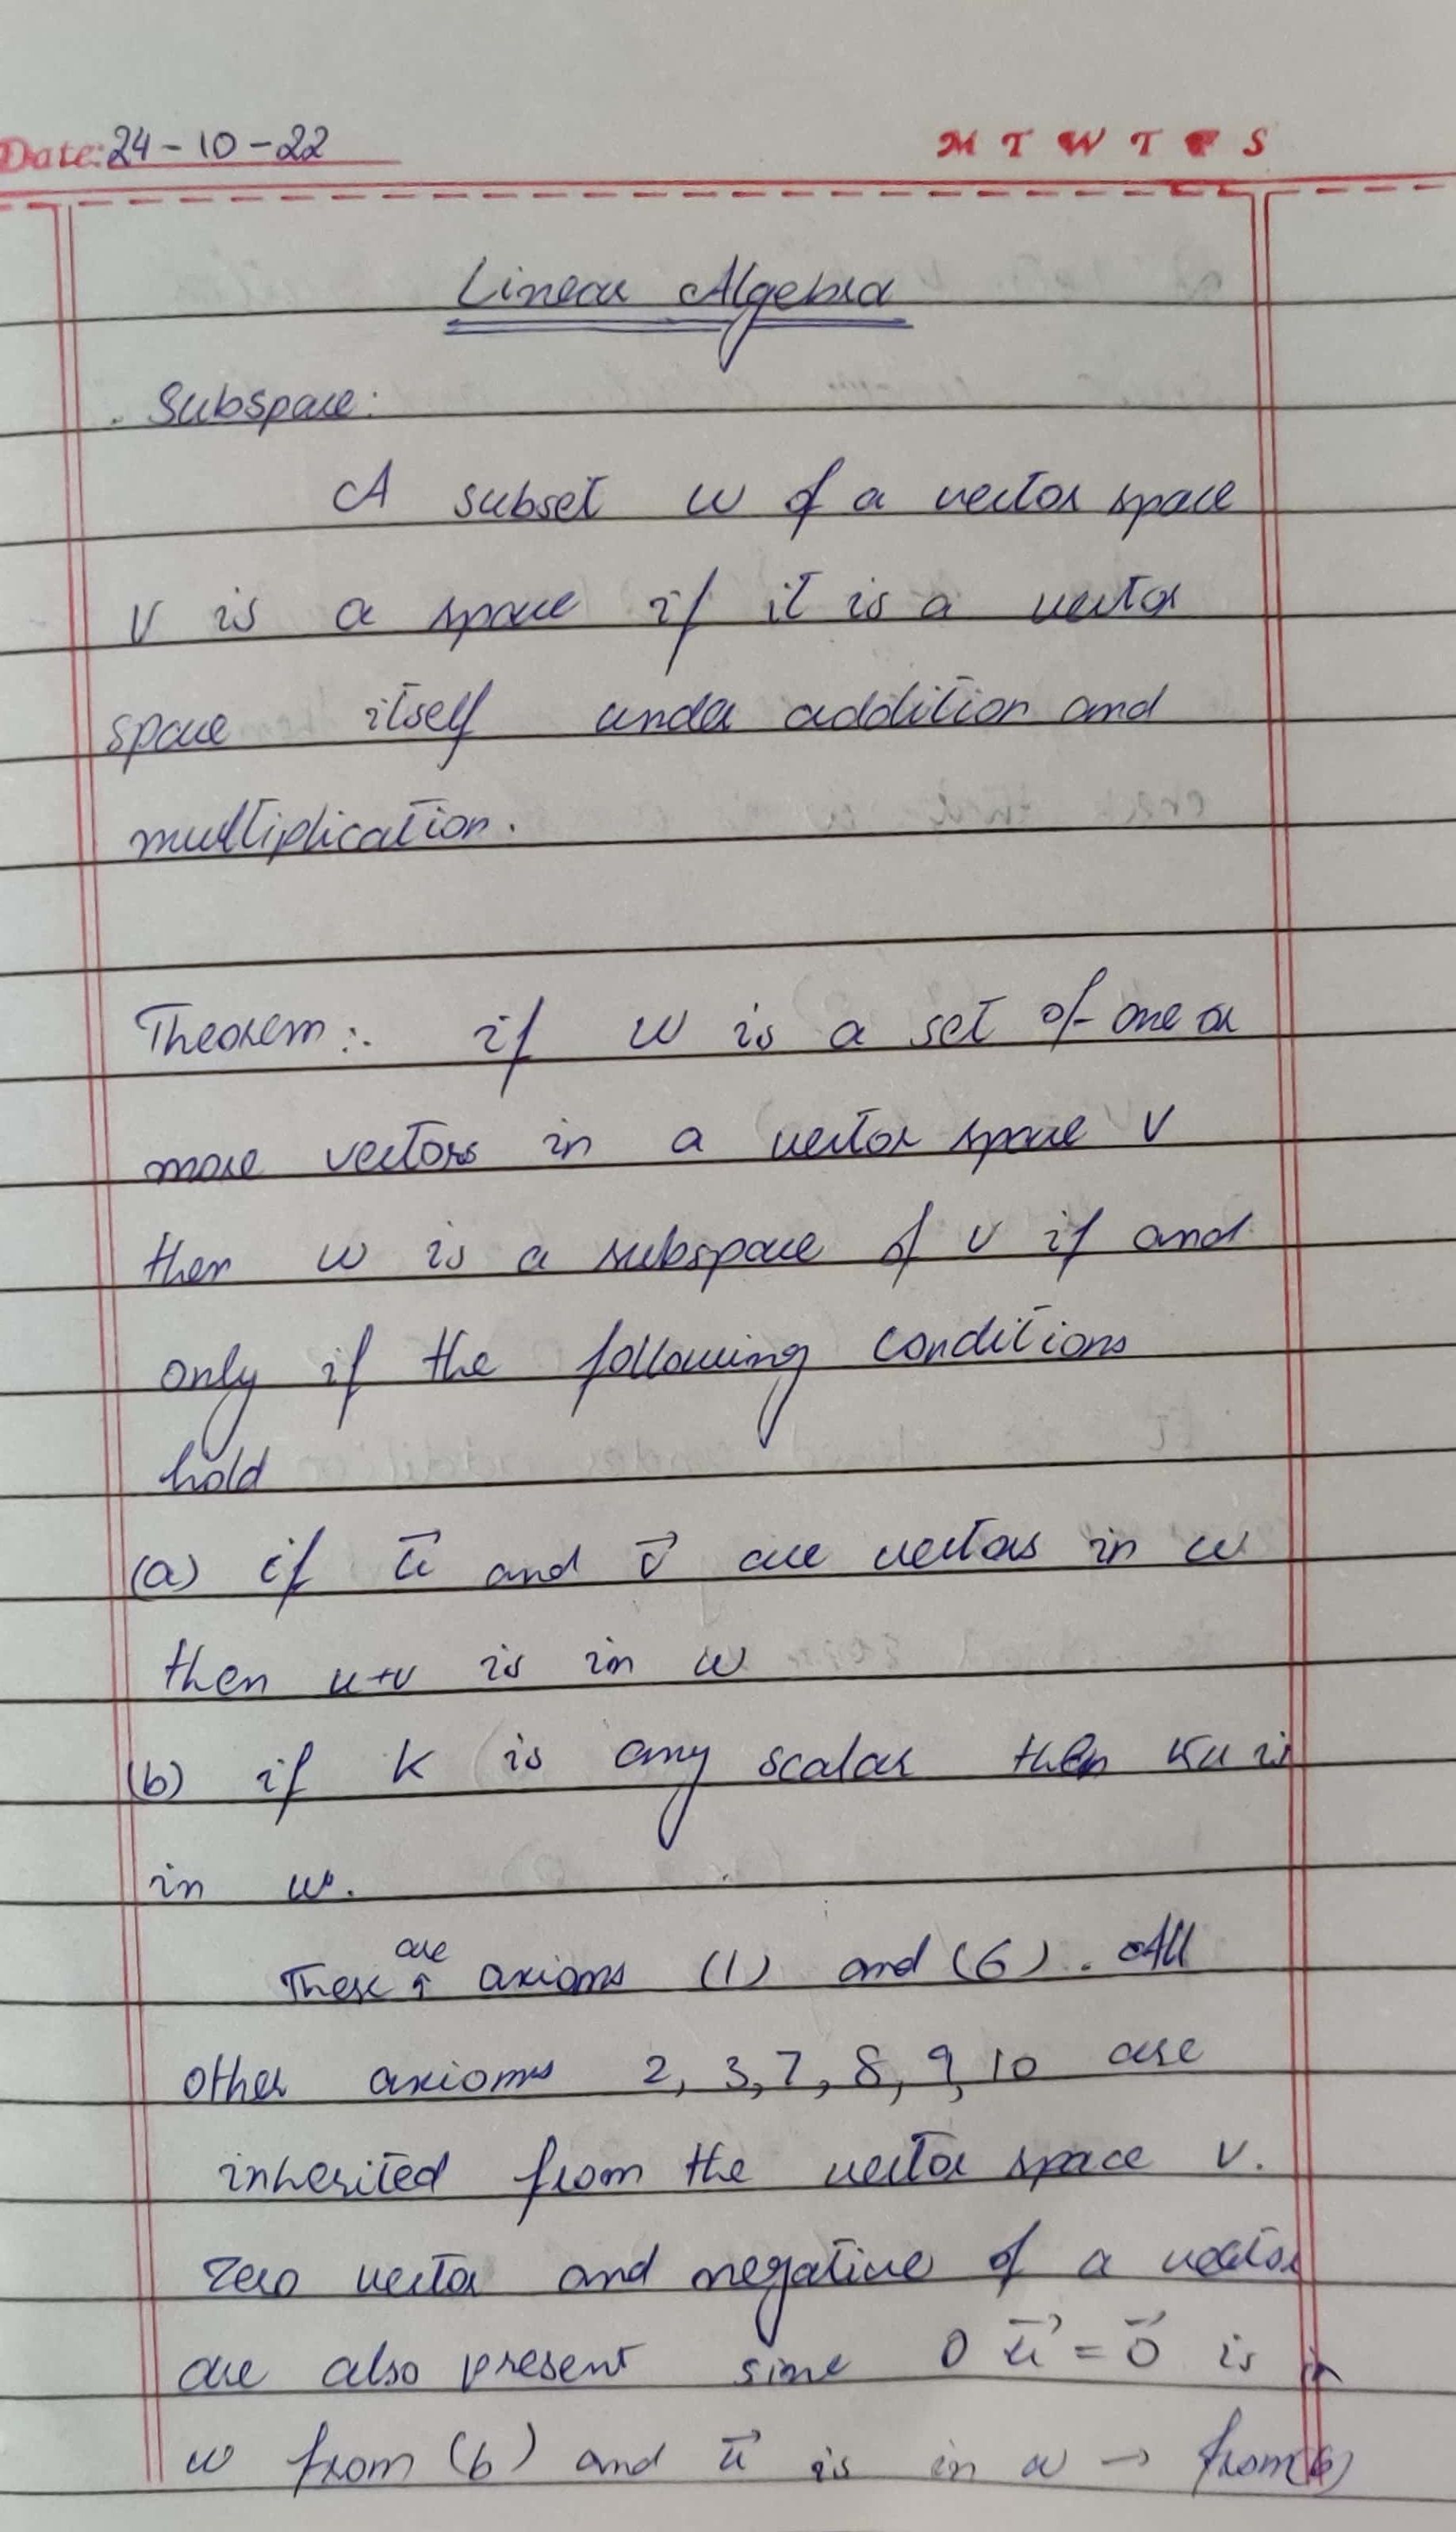 Date: 24-10-22 M T W T F S
Linear Algebra
Subspace:
A subset W of a vector space
V is a space if it is a vector
space itself under addition and
multiplication.
Theorem:. if W is a set of one or
more vectors in a vector space V
then W is a subspace of V if and
only if the following conditions
hold
(a) if u⃗ and v⃗ are vectors in W
then u+v is in W
(b) if K is any scalar then Ku is
in W.
These are axioms (1) and (6). All
other axioms 2, 3, 7, 8, 9, 10 are
inherited from the vector space V.
zero vector and negative of a vector
are also present since 0 u⃗ = 0⃗ is in
W from (b) and u⃗ is in W → from(b)